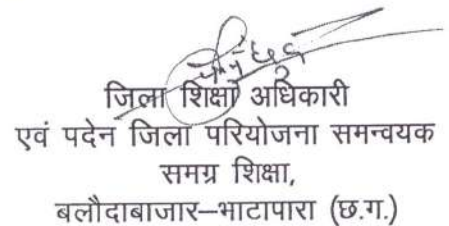 जिला शिक्षा अधिकारी
एवं पदेन जिला परियोजना समन्वयक
समग्र शिक्षा,
बलौदाबाजार–भाटापारा (छ.ग.)